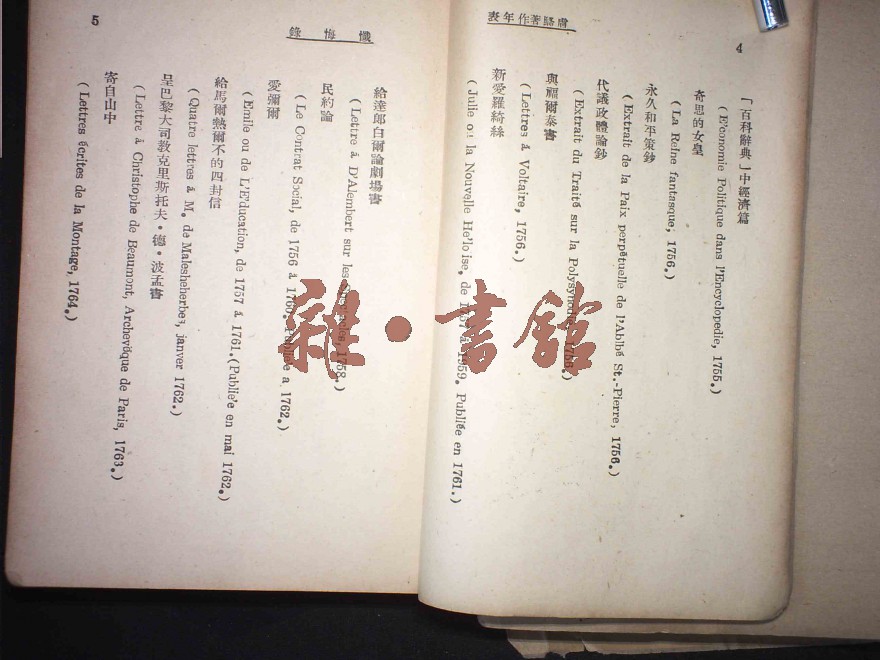 盧騷著作年表
4
「百科辭典」中經濟篇
(E'conomie Politique dans l'Encyclopedie, 1755.)
奇思的女皇
(La Reine fantasque, 1756.)
永久和平策鈔
(Extrait de la Paix perpétuelle de l'Abbé St.-Pierre, 1756.)
代議政體論鈔
(Extrait du Traité sur la Polysynodie, 1756.)
與福爾泰書
(Lettres á Voltaire, 1756.)
新愛羅綺絲
(Julie ou la Nouvelle He'loise, de 1757 a 1959. Publiée en 1761.)
懺悔錄
5
給達郎白爾論劇場書
(Lettre á D'Alembert sur les 1758.)
民約論
(Le Contrat Social, de 1756 á 1760. Publiée a 1762.)
愛彌爾
(Emile ou de L'E'ducation, de 1757 á 1761.(Publie'e en mai 1762.)
給馬爾熱爾不的四封信
(Quatre lettres á M. de Malesheherbes, janver 1762.)
呈巴黎大司教克里斯托夫·德·波孟書
(Lettre á Christophe de Beaumont, Archevêque de Paris, 1763.)
寄自山中
(Lettres écrites de la Montage, 1764.)
雜·書館